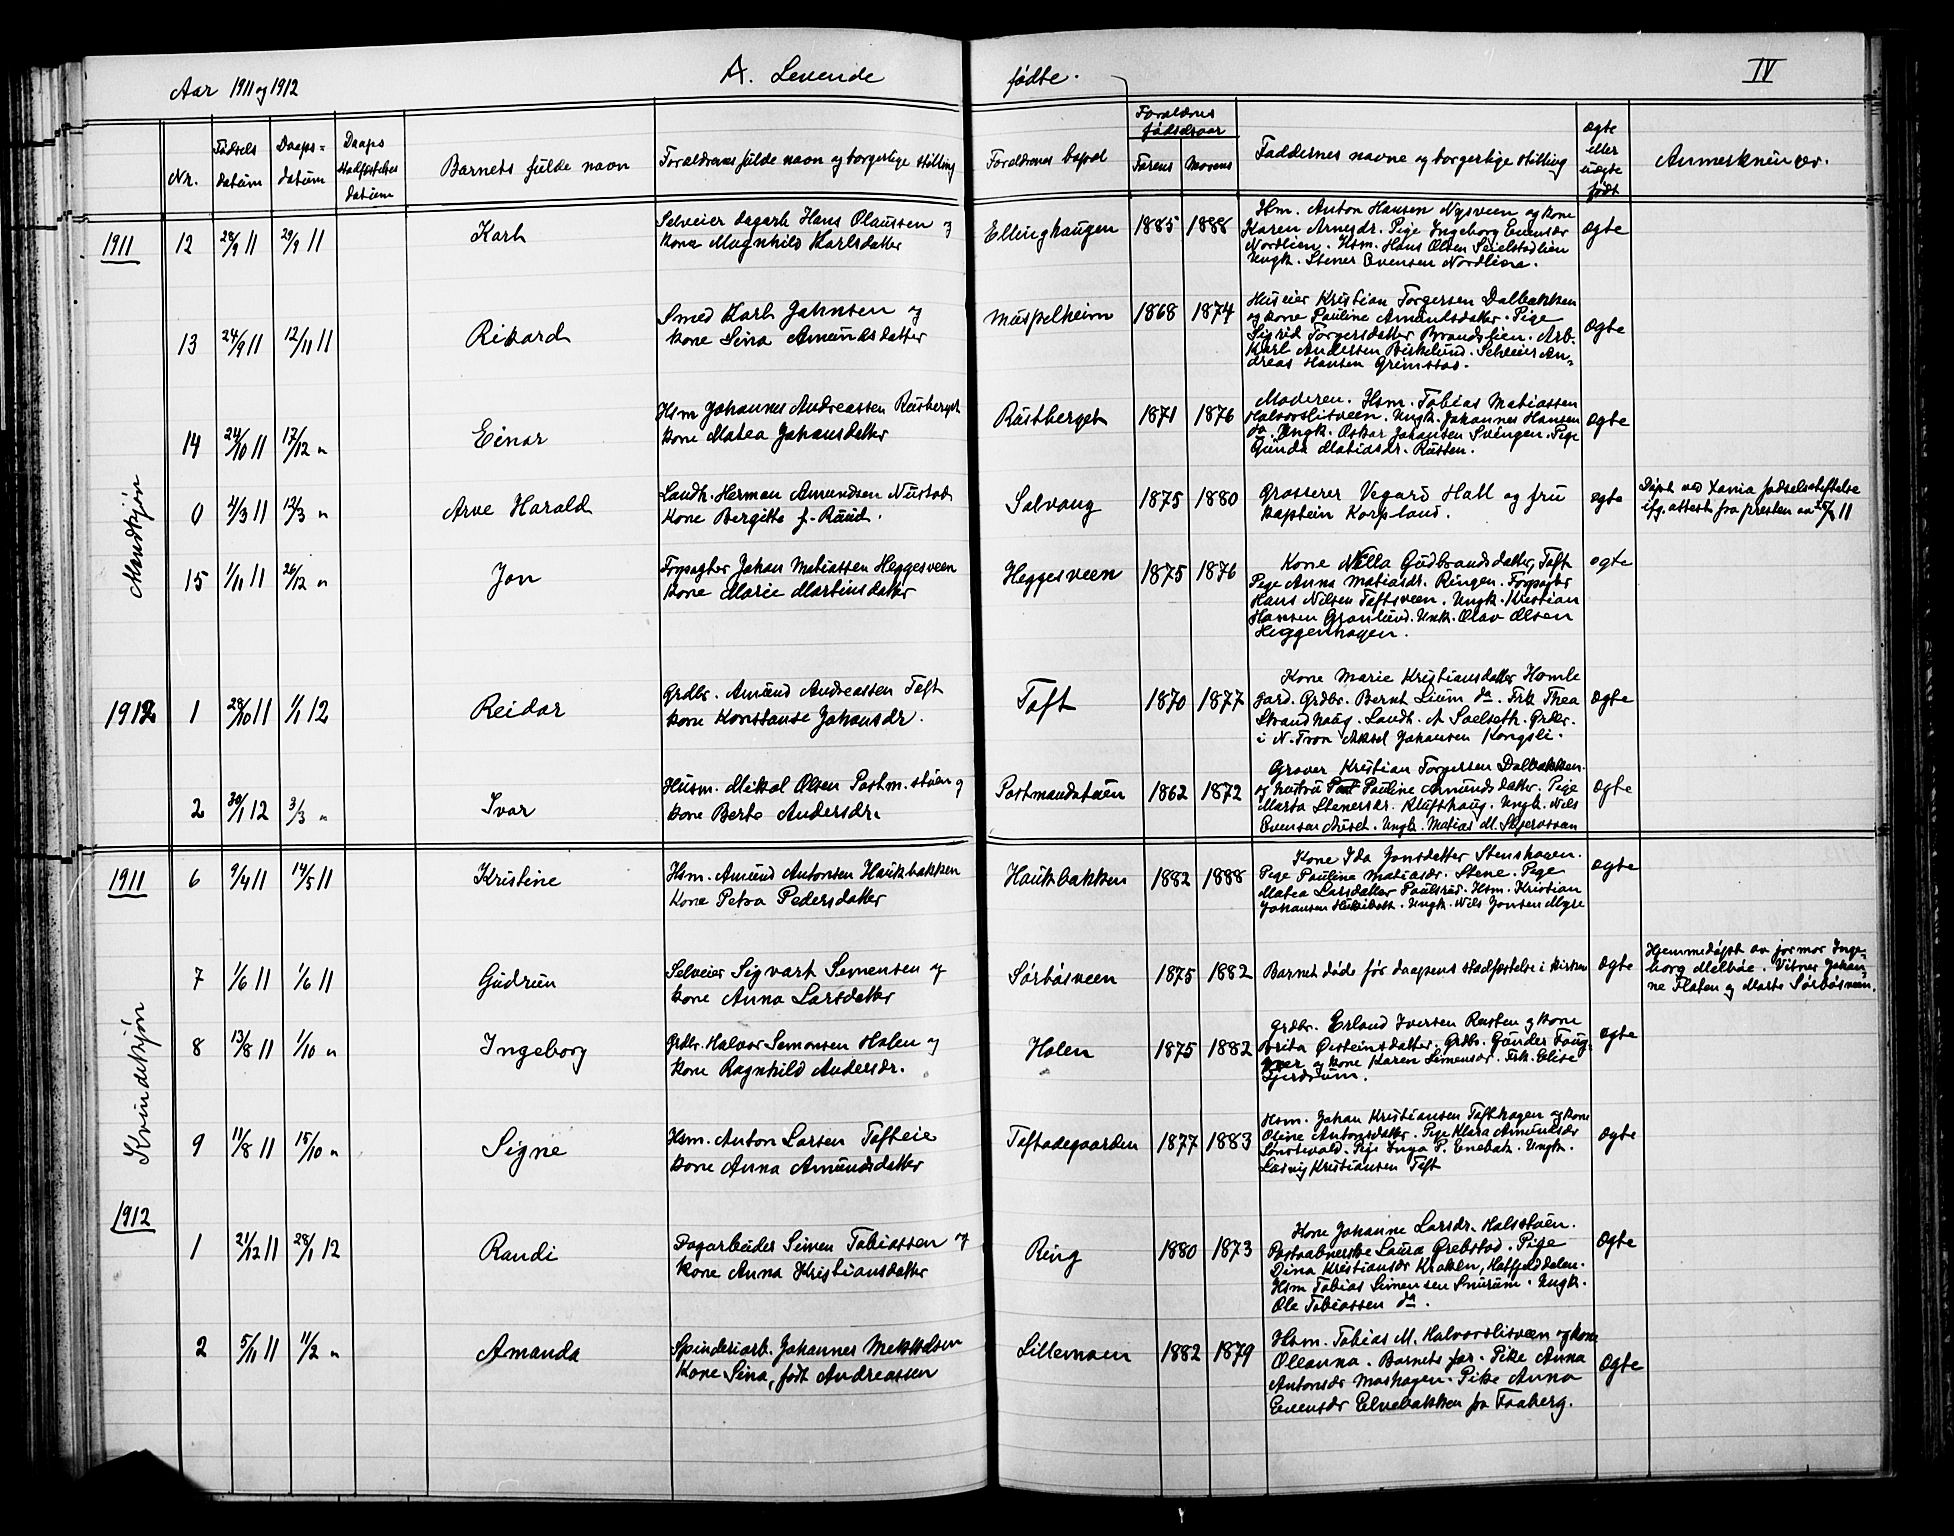 Aar 1911 og 1912
A. Levende fødte.
IV
Nr.
Fødsels datum
Daaps= datum
Daaps Stadfæstelses datum
Barnets fulde navn
Forældrenes fulde navn og borgerlige stilling
Forældrenes bopæl
Forældrenes fødselsaar
Farens
Morens
Faddernes navne og borgerlige stilling
Ægte eller uægte født
Anmerkninger.
Mandkjøn
1911 12 28/9 11 29/9 11 Karl
Selveier dagarb Hans Olaussen og
kone Magnhild Karlsdatter
Ellinghaugen 1885 1888
Hsm. Anton Hansen Nysveen og kone
Karen Arnesdr. Pige Ingeborg Evensdr
Nordlien. Hsm. Hans Olsen Seielstadlien
Ungk. Stener Evensen Nordlien.
ægte
13 24/9 11 12/11 11 Rikard
Smed Karl Jahnsen og
kone Sina Amundsdatter
Muspelheim 1868 1874
Huseier Kristian Torgersen Dalbakken
og kone Pauline Amundsdatter. Pige
Sigrid Torgersdatter Brandslien. Arb.
Karl Andersen Birkelund. Selveier An=
dreas Hansen Grimstad.
ægte
14 24/10 11 17/12 " Einar
Hsm Johannes Andreassen Rustberget
kone Matea Johansdatter
Rustberget 1871 1876
Moderen. Hsm. Tobias Matiassen
Halvorslisveen. Ungk. Johannes Hansen
do. Ungk. Oskar Johansen Svingen. Pige
Gunda Matiasdr. Rusten.
ægte
0 4/3 11 12/3 " Arve Harald
Landh. Herman Amundsen Nustad
Kone Bergitte f. Ruud.
Solvang 1875 1880
Grosserer Vegard Hall og fru
kaptein Korpland.
ægte
Døpt ved Xania fødselsstiftelse
ifg. attest fra presten av 11
15 1/11 11 26/12 " Jon
Forpagter Johan Matiassen Heggesveen
kone Marie Martinsdatter
Heggesveen 1875 1876
Kone Nilla Gudbrandsdatter, Toft
Pige Anna Matiasdr. Ringen. Forpagter
Hans Nilsen Toftsveen. Ungk. Kristian
Hansen Grønlund. Ungk. Olav Olsen
Heggenhagen.
ægte
1912 1 28/10 11 1/1 12 Reidar
Grdbr. Amund Andreassen Toft
kone Konstanse Johansdr.
Toft 1870 1877
Kone Marie Kristiansdatter Homle
gard. Grdbr. Bernt Lium do. Frk Thea
Strandhaug. Landh. A Saelseth. Grdbr.
i N. Fron Aksel Johansen Kongsli.
ægte
2 30/1 12 3/3 " Ivar
Husm. Mikal Olsen Postm.støen og
kone Berte Andersdr.
Postmandstøen 1862 1872
Graver Kristian Torgersen Dalbakken
og hustru Pauline Amundsdatter. Pige
Marta Stenersdr. Klufthaug. Ungk. Nils
Evensen Aaset. Ungk. Matias M. Skjerossan
ægte
Kvindekjøn
1911 6 9/4 11 14/5 11 Kristine
Hsm. Amund Antonsen Haukbakken
Kone Petra Pedersdatter
Haukbakken 1882 1888
Kone Ida Jonsdatter Stenshagen.
Pige Paulina Matiasdr. Stene. Pige
Matea Larsdatter Paulsrud. Hsm. Kristian
Johansen Ungk. Nils Jonsen Myre
ægte
7 1/6 11 1/6 11 Gudrun
Selveier Sigvart Semensen og
kone Anna Larsdatter
Sørbøsveen 1875 1882
Barnet døde før daapens stadfæstelse i kirken
ægte
Hjemmedøpt av jormor Inge=
borg Melbøe. Vitner Johan=
ne Flaten og Marte Sørbøsveen.
8 13/8 11 1/10 " Ingeborg
Grdbr. Halvor Semonsen Holen og
kone Ragnhild Andersdr.
Holen 1875 1882
Grdbr. Erland Iversen Rusten og kone
Brita Øisteinsdatter. Grdb. Gunder Foug=
ner og kone Karen Simensdr. Frk. Elise
Gjerdrum.
ægte
9 11/8 11 15/10 " Signe
Hsm. Anton Larsen Tofteie
kone Anna Amundsdatter
Toftødegaarden 1877 1883
Hsm. Johan Kristiansen Tofthagen og kone
Oline Antonsdatter. Pige Klara Amundsdr
Pige Inga P. Enebak. Ungk.
Ludvig Kristiansen Toft
ægte
1912
1 21/12 11 28/1 12 Randi
Dagarbeider Simen Tobiassen og
kone Anna Kristiansdatter
Ring 1880 1873
Kone Johanne Larsdr. Halsstøen.
Postaabnerske Laura Grebstad. Pige
Dina Kristiansdr Kroken, Hatfjelddalen.
Hsm Tobias Simensen Snurum. Ungk.
Ole Tobiassen do.
ægte
2 5/11 11 11/2 " Amanda
Spinderiarb. Johannes Mekkelsen
Kone Sina, født Andreassen
Lillemoen 1882 1879
Hsm. Tobias M. Halvorslisveen og kone
Oleanna. Barnets far. Pike Anna
Antonsdr Moshagen. Pike Anna
Evensdr Elvebakken fra Faaberg.
ægte